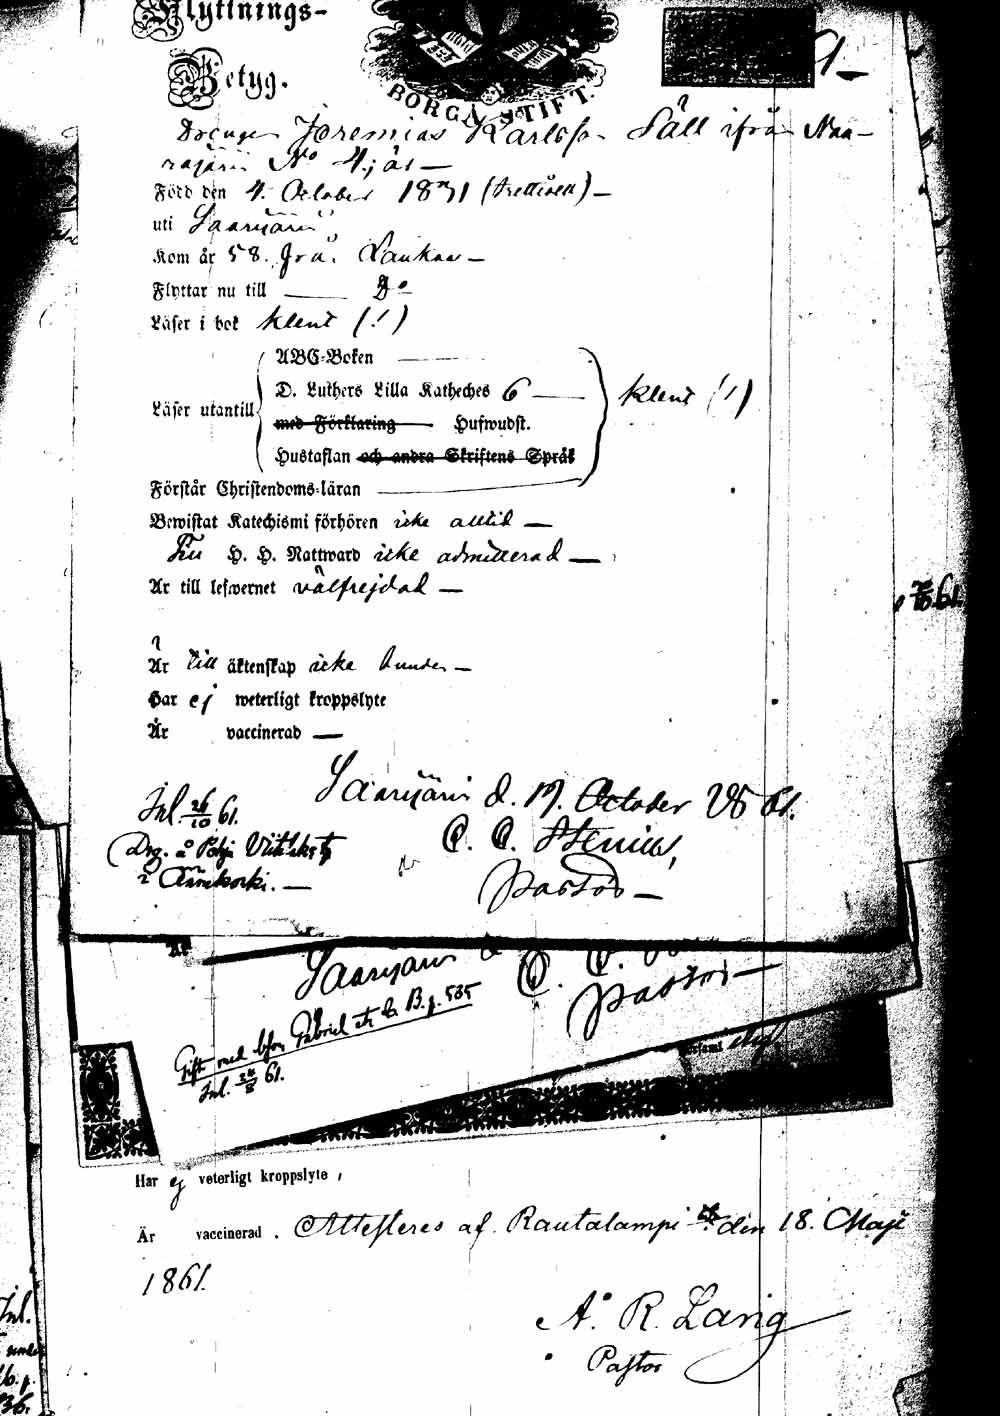 Flyttnings-
Betyg.
BORGÅ STIFT.
Drengen Jeremias Karlsson Säll ifrån Naa-
rajärvi No 4; är —
Född den 4. October 1831 (trettioett) —
uti Saarijärvi
Kom år 58. från Laukaa —
Flyttar nu till —— Do
Läser i bok klent (!)
ABC-Boken ——
D. Luthers Lilla Katheches 6 ——
Läser utantill
med Förklaring —— Hufwudst.
Hustaflan och andra Skriftens Språk
klent (!)
Förstår Christendoms-läran ——
Bewistat Katechismi förhören icke alltid —
Till H. H. Nattward icke admitterad —
Är till lefwernet välfrejdad —
Är till äktenskap icke bunden —
Har ej weterligt kroppslyte
Är vaccinerad —
Saarijärvi d. 17. October 1861.
C. C. Stenius,
pastor —
Inl. 26/10 61.
Drg. å
i Äänekoski. —
61.
Saarijärvi
C. C.
pastor —
Gift med Gabriel B. p. 535
Inl. 24/8 61.
Har ej veterligt kroppslyte,
Är vaccinerad. Attesteras af Rautalampi den 18. Maji
1861.
A. R. Lang
Pastor
Inl.
36.